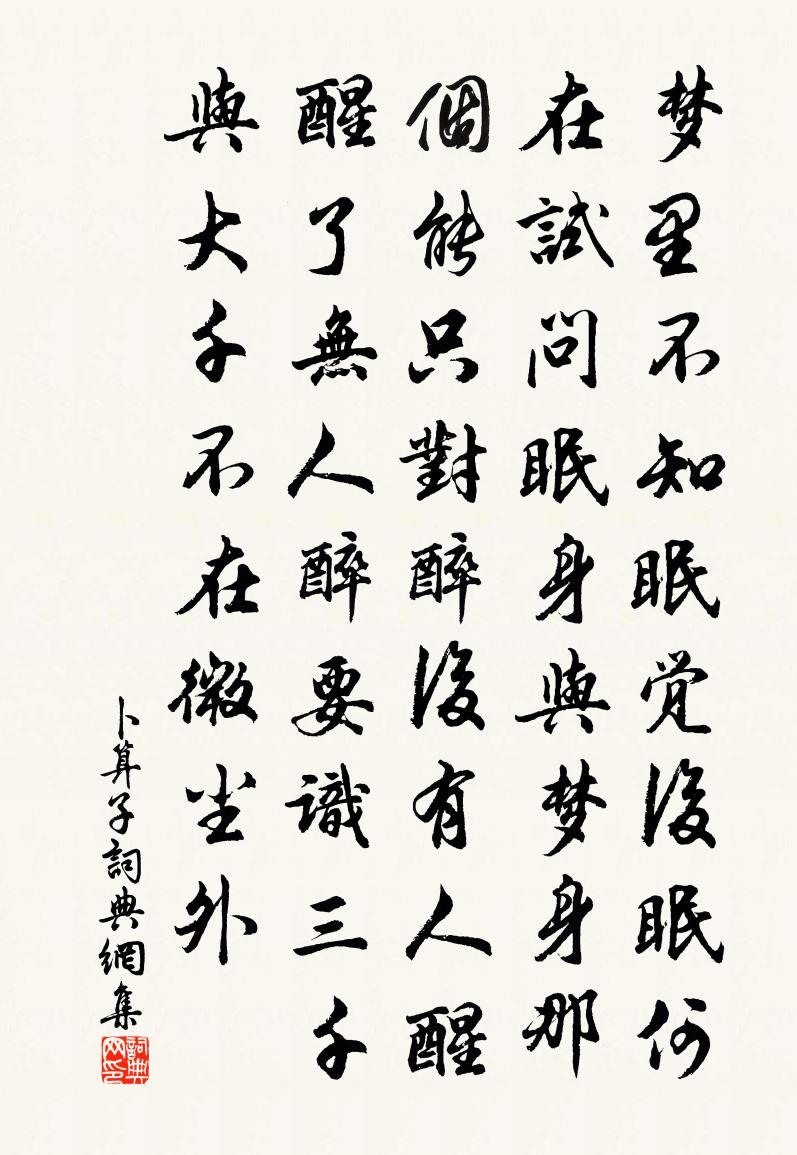 梦里不知眠觉後眠何
在試問眠身與梦身那
個能只對醉後有人醒
醒了無人醉要識三千
與大千不在微尘外
卜算子詞典網集
詞典网印